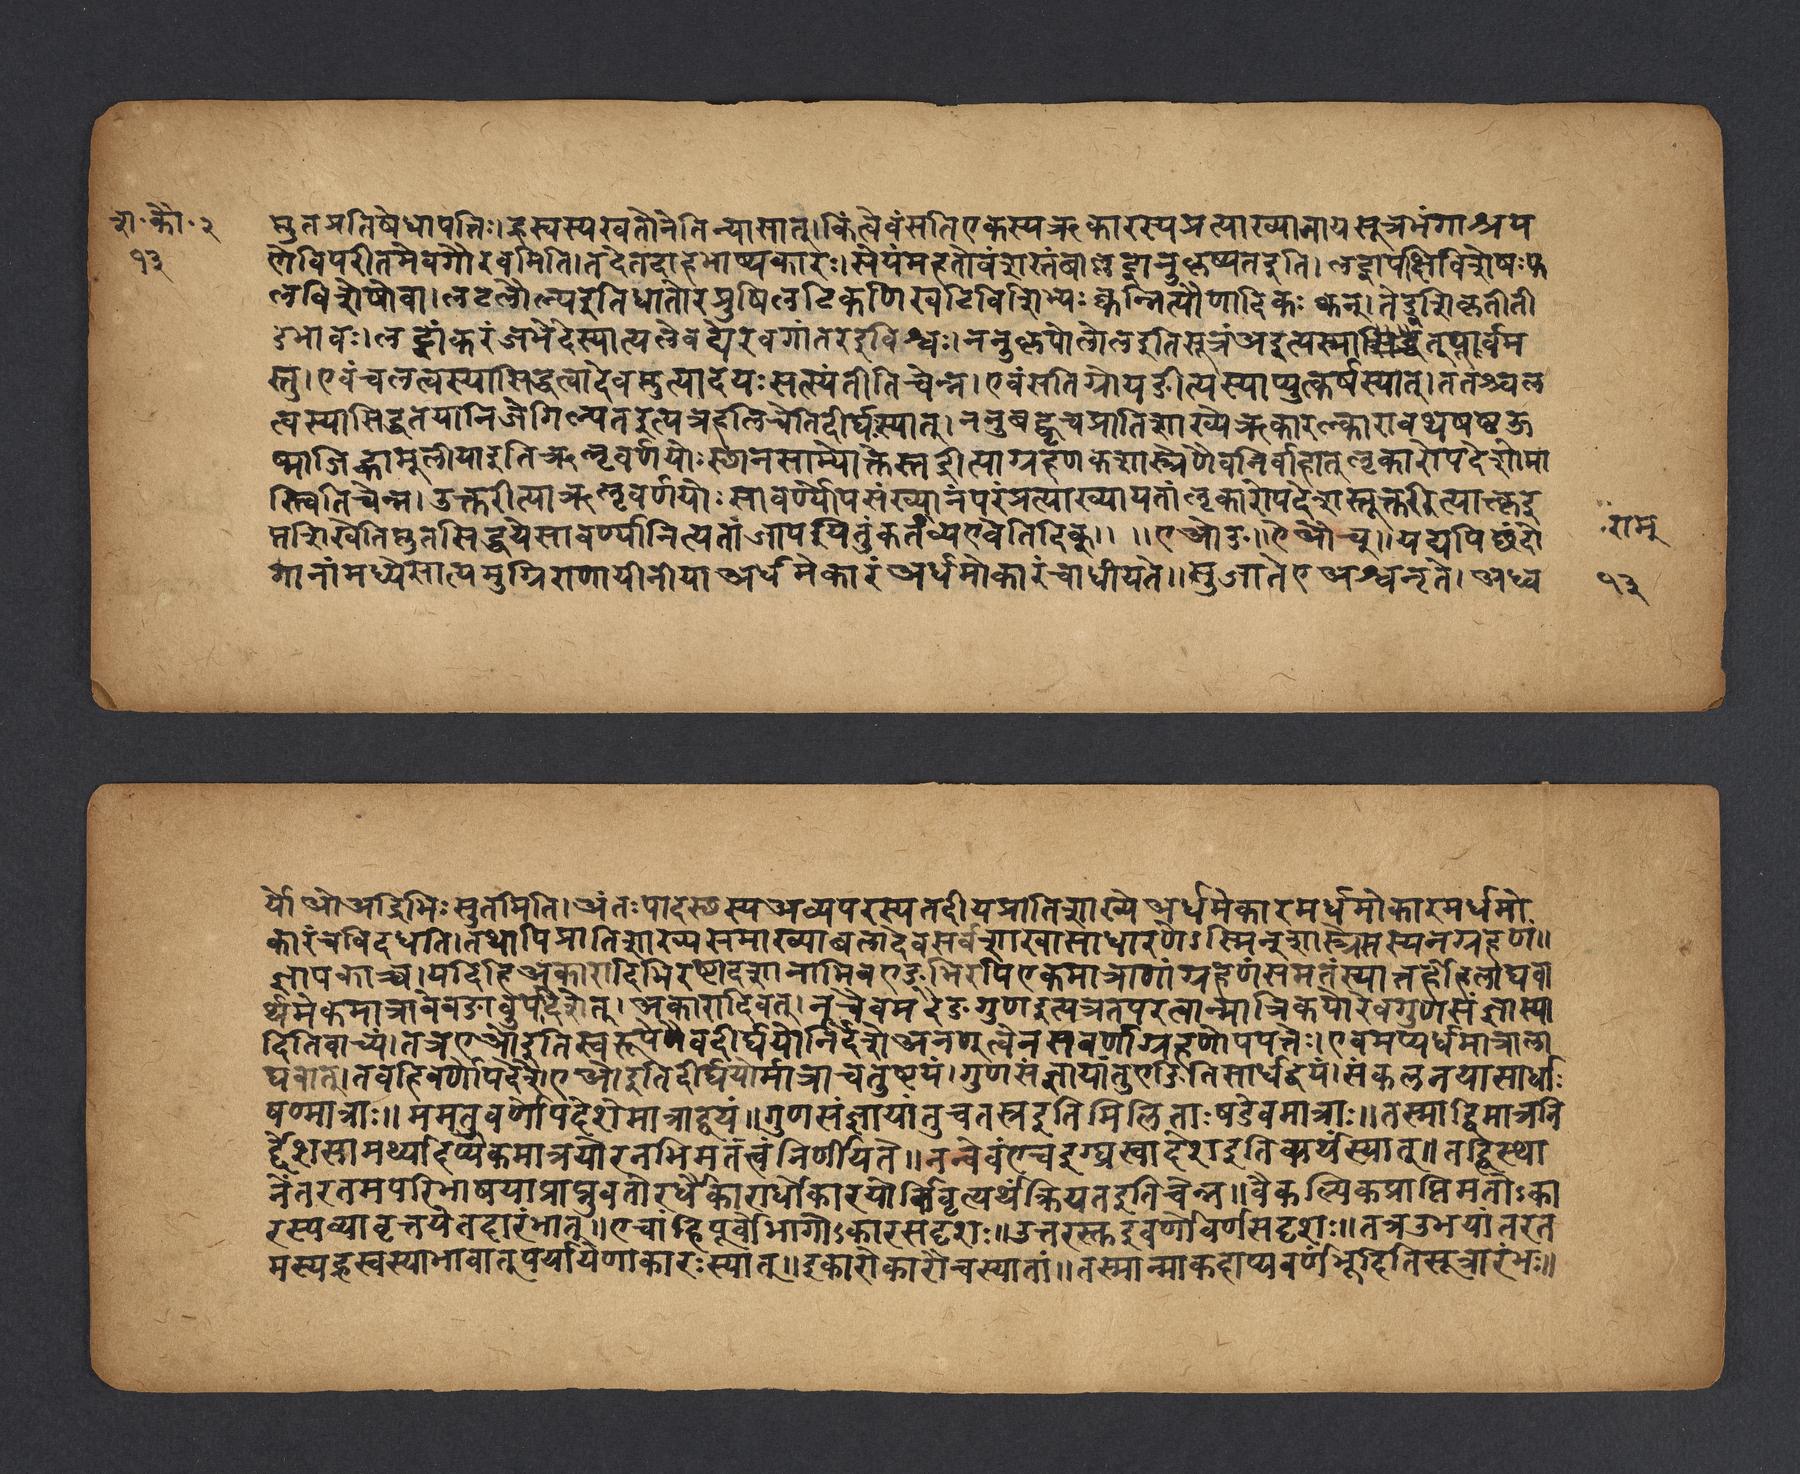 शा.कौ.२
१३
प्लुतप्रतिषेधापत्तिः।ह्रस्वस्यरवतोनेतिन्यासात्।किंत्वेवंसतिएकस्यऋकारस्यप्रत्याख्यानायसूत्रभंगाश्रय
णेविपरीतमेवगौरवमिति।तदेतदाहभाष्यकारः।सेयंमहतोवंशस्तंबाल्लट्वानुकृष्यतइति।लट्वापक्षिविशेषःफ
लविशेषोवा।लटलौल्यइतिधातोरशुप्रुषिलटिकणिखटिविशिभ्यःक्वन्नित्यौणादिकः क्वन्।नेड्वशिकृतीती
डभावः।लट्वाकरंजभेदेस्यात्फलेवद्येखगांतरइविश्वः।ननुकृपोरोलइतिसूत्रंअइत्यस्यासिद्धंतुप्लार्वम
स्तु।एवंचलत्वस्यासिद्धत्वादेवप्लुत्यादयःसत्स्यंतीतिचेन्न।एवंसतिग्रोयङीत्यस्याप्युत्कर्षस्यात्।ततश्चल
त्वस्यासिद्धतयानिजेगिल्यतइत्यत्रहलिचेतिदीर्घःस्यात्।ननुबह्वृचप्रातिशाख्येऋकारल्कारावथषष्ठऊ
ष्माजिह्वामूलीयाइतिऋऌवर्णयोःस्थानसाम्योक्तेस्तद्रीत्याग्रहणकशास्त्रेणैवनिर्वाहात्ऌकारोपदेशोमा
स्त्वितिचेन्न।उक्तरीत्याऋऌवर्णयोःसावर्ण्योपसंख्यानंपरंप्रत्याख्यायतांऌकारोपदेशस्तूक्तरीत्याकॢ३
प्तशिखेतिप्लुतसिद्धयेसावर्ण्यानित्यतांज्ञापयितुंकर्तव्यएवेतिदिक्।। ।।एओङ्।।ऐऔच्।।यद्यपिछंदो
गानांमध्येसात्यमुग्रिराणायीनीयाअर्धमेकारंअर्धमोकारंचाधीयते।।सुजातेएअश्वनृते।अध्व
रामु
१३
र्योओअद्रिभिःसुतमिति।अंतःपादस्थस्यअव्यपरस्यतदीयप्रातिशाख्येअर्धमेकारमर्धमोकारमर्धमो
कारंचविदधति।तथापिप्रातिशाख्यसमाख्याबलादेवसर्वशाखासाधारणेऽस्मिन्शास्त्रेतस्यनग्रहणं।।
ज्ञापकाच्च।यदिहिअकारादिभिरष्टादशानामिवएङ्भिरपिएकमात्राणांग्रहणंसमतंस्यात्तर्हिलाघवा
र्थमेकमात्रावेवङावुपदिशेत्।अकारादिवत्।नचैवमदेङगुणइत्यत्रतपरत्वान्मात्रिकयोरेवगुणसंज्ञास्या
दितिवाच्यं।तत्रएओइतिस्वरूपेणैवदीर्घयोर्निर्देशेअनणुत्वेनसवर्णाग्रहणोपपत्तेः।एवमप्यर्धमात्राला
घवात्।तवहिवर्णोपदेशेएओइतिदीर्घयोर्मात्राचतुष्टयं।गुणसंज्ञायांतुएङितिसार्धद्वयं।संकलनयासार्धाः
षण्मात्राः।।ममतुवर्णोपदेशेमात्राद्वयं।।गुणसंज्ञायांतुचतस्रइतिमिलिताःषडेवमात्राः।।तस्माद्द्विमात्रनि
र्देशसामर्थ्यादप्येकमात्रयोरनभिमतत्त्वंनिर्णीयते।।नन्वेवंएचइग्घ्रस्वादेशइतिकार्यंस्यात्।।तद्धिस्था
नेंतरतमपरिभाषयाप्राप्नुवतोरर्धैकारार्धौकारयोर्निवृत्यर्थंक्रियतइतिचेन्न।।वैकल्पिकप्राप्तिमतोऽका
रस्यव्यावृत्तयेतदारंभात्।।एचांहिपूर्वोभागोऽकारसदृशः।।उत्तरस्तुइवर्णोवर्णसदृशः।।तत्रउभयांतरत
मस्यह्रस्वस्याभावात्पर्यायेणाकारःस्यात्।।इकारोकारौचस्यातां।।तस्मान्माकदाप्यवर्णंभूदितिसूत्रारंभः।।